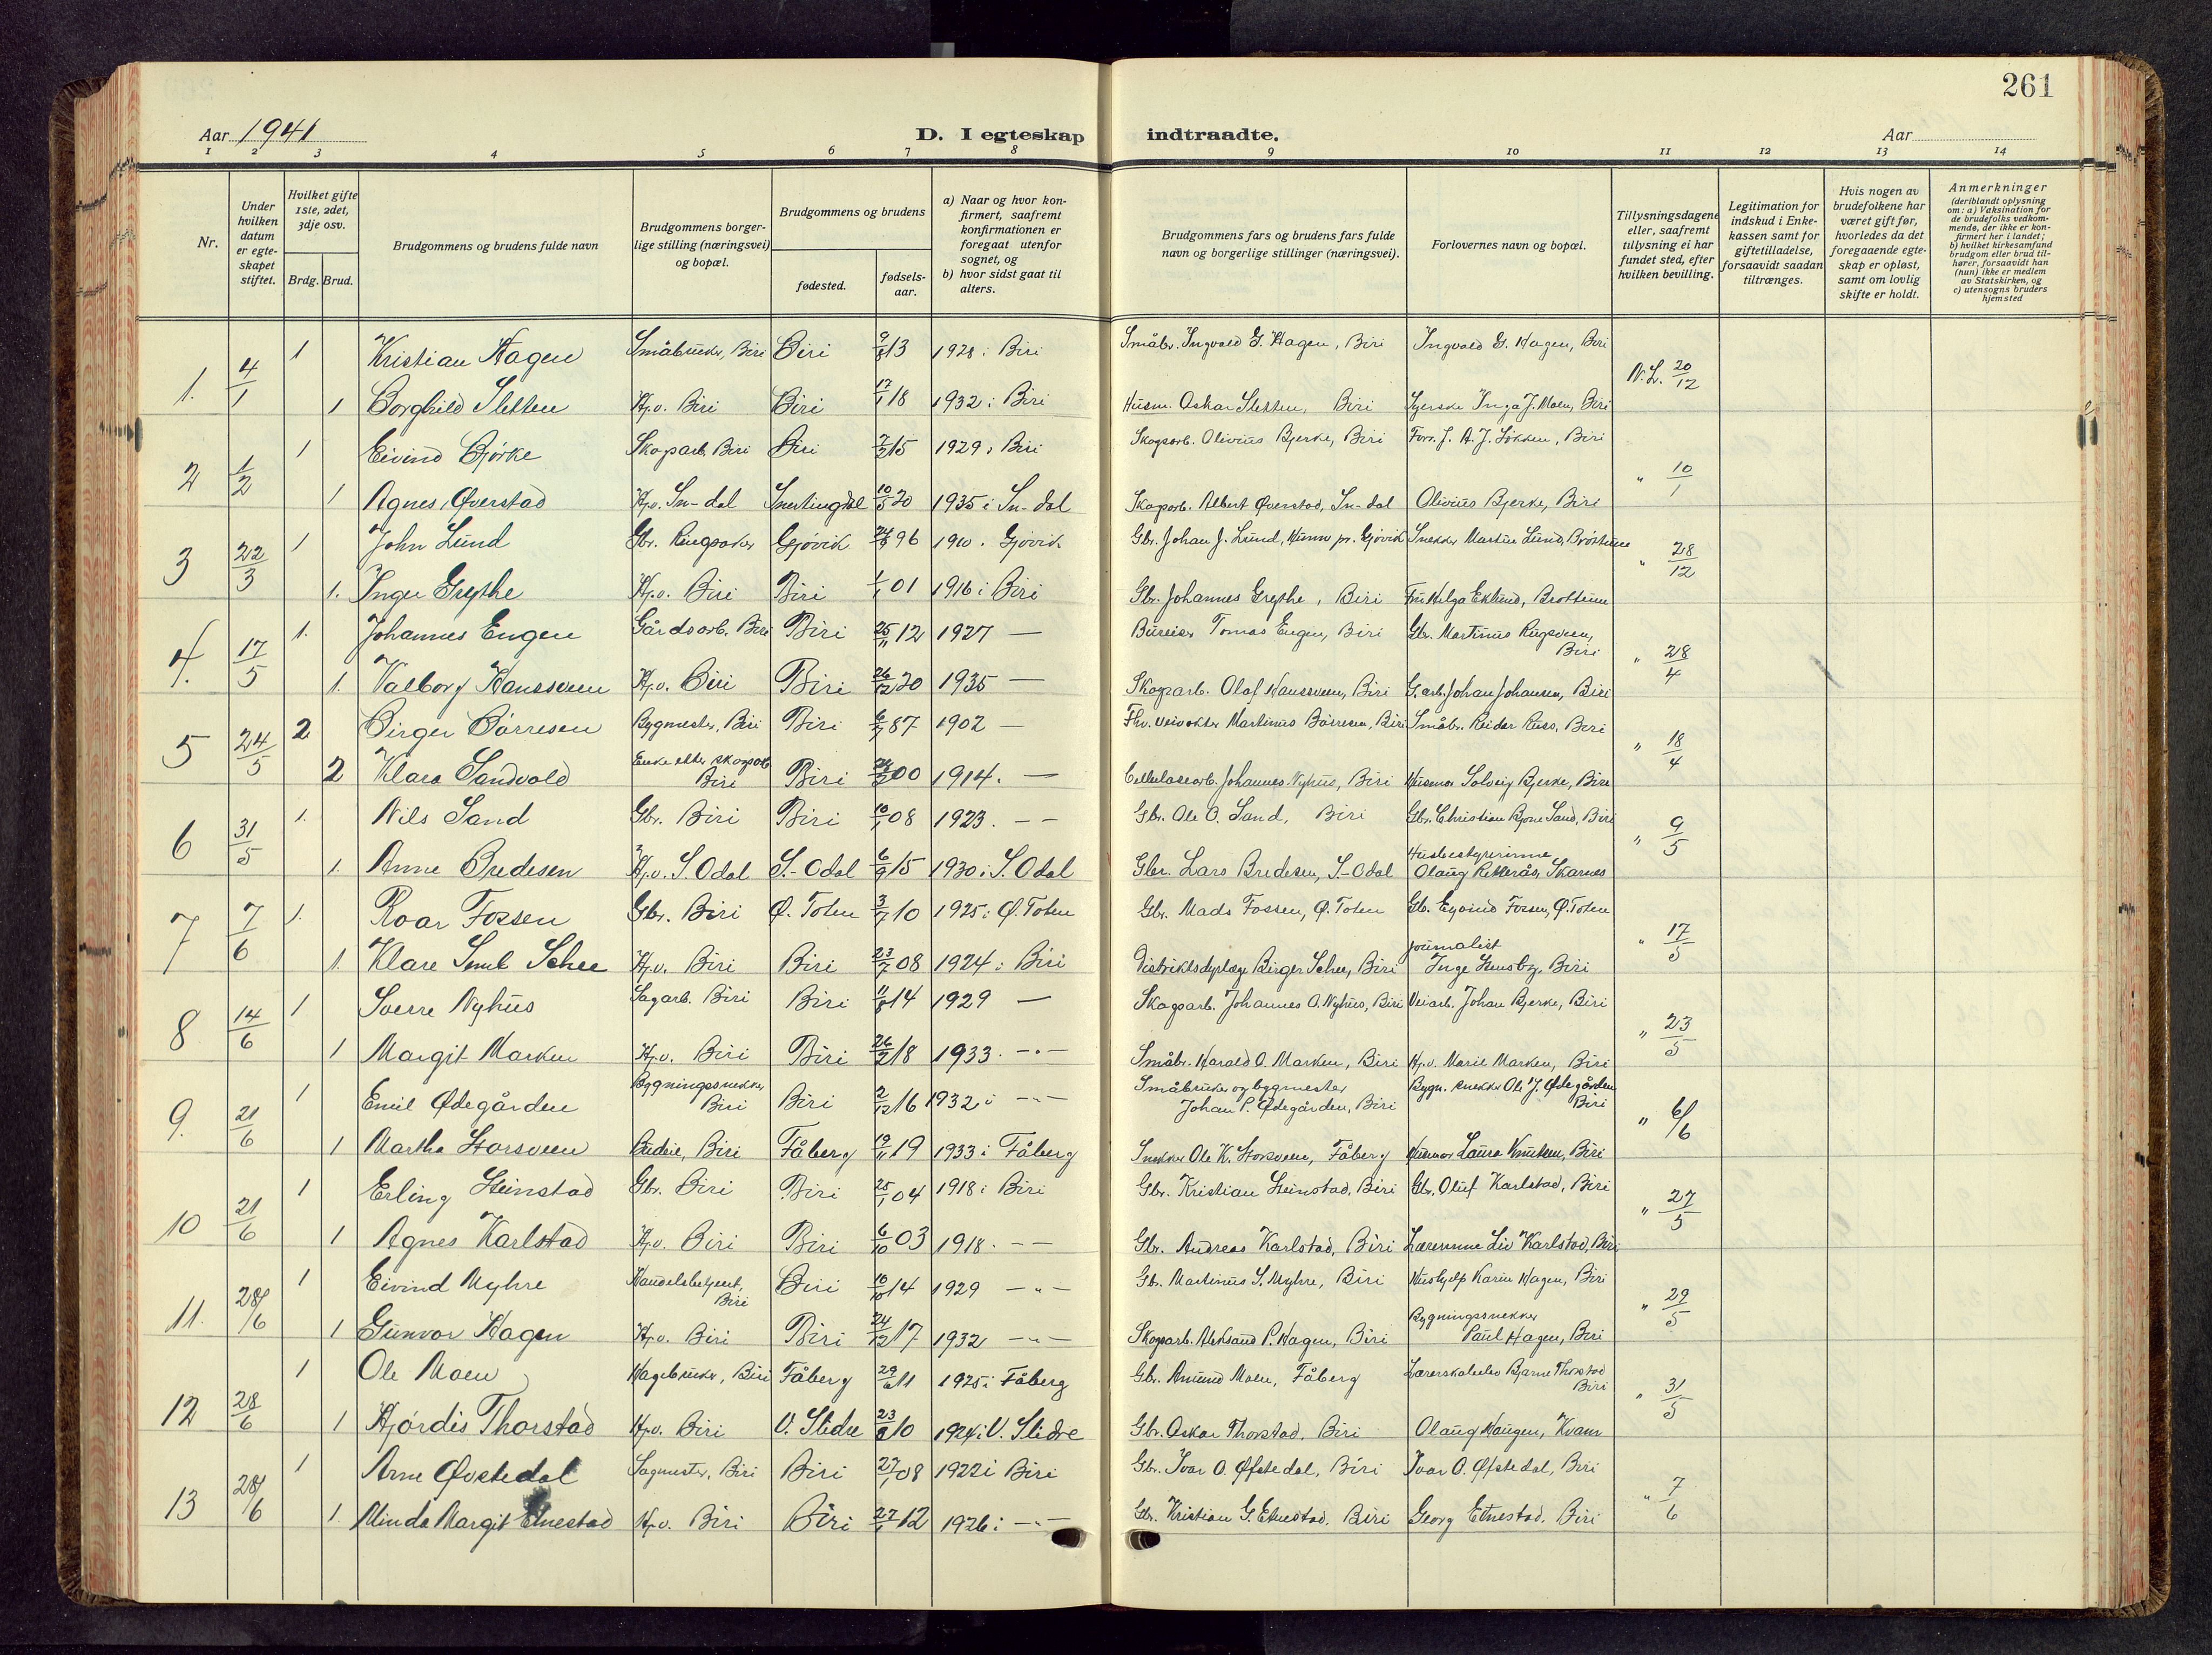 261
Aar 1941 D. I egteskap indtraadte. Aar
1 2 3 4 5 6 7 8 9 10 11 12 13 14
Nr.
Under hvilken datum er egteskapet stiftet.
Hvilket gifte 1ste, 2det, 3dje osv.
Brdg. Brud.
Brudgommens og brudens fulde navn
Brudgommens borgerlige stilling (næringsvei) og bopæl.
Brudgommens og brudens
fødested.
fødselsaar.
a) Naar og hvor konfirmert, saafremt konfirmationen er foregaat utenfor sognet, og
b) hvor sidst gaat til alters.
Brudgommens fars og brudens fars fulde navn og borgerlige stillinger (næringsvei).
Forlovernes navn og bopæl.
Tillysningsdagene eller, saafremt tillysning ei har fundet sted, efter hvilken bevilling.
Legitimation for indskud i Enkekassen samt for giftetilladelse, forsaavidt saadan tiltrænges.
Hvis nogen av brudefolkene har været gift før, hvorledes da det foregaaende egteskap er opløst, samt om lovlig skifte er holdt.
Anmerkninger (deriblandt oplysning om: a) Vaksination for de brudefolks vedkommende, der ikke er konfirmert her i landet; b) hvilket kirkesamfund brudgom eller brud tilhører, forsaavidt han (hun) ikke er medlem av Statskirken, og c) utensogns bruders hjemsted
1. 4/1 1 Kristian Hagen Småbruker, Biri Biri 13 1928 i Biri Småbr. Ingvald G. Hagen, Biri Ingvald G. Hagen, Biri N.L. 20/12
1 Borghild Sletten Hp.v. Biri Biri 17/1 18 1932 i Biri Husm. Oskar Sletten, Biri Syerske Inga J. Moen, Biri
2 1/2 1 Eivind Bjørke Skogarb. Biri Biri 15 1929 i Biri Skogsarb. Olivius Bjerke, Biri Forr. J. A. J. Løkken, Biri " 10/1
1 Agnes Øverstad Hp.v. Sn-dal Snertingdal 10/5 20 1935 i Sn-dal Skogarb. Albert Øverstad, Sn-dal Olivius Bjerke, Biri
3 22/3 1 John Lund Gbr. Ringsaker Gjøvik 96 1910 i Gjøvik Gbr. Johan J. Lund, Hunn pr. Gjøvik Snekker Martin Lund, Brøttum " 28/12
1. Inger Grythe Hp.v. Biri Biri 1/1 01 1916 i Biri Gbr. Johannes Grythe, Biri Fru Helga Eklund, Brøttum
4. 17/5 1. Johannes Engen Gårdsarb. Biri Biri 25/11 12 1927 — Bureiser Tomas Engen, Biri Gbr. Martinus Rugsveen, Biri " 28/4
1. Valborg Hansveen Hp.v. Biri Biri 26/12 20 1935 — Skogsarb. Olaf Hansveen, Biri G.arb. Johan Johansen, Biri
5 24/5 2 Birger Børresen Bygmester, Biri Biri 87 1902 — Fhv. veivokter Martinus Børresen, Biri Småbr. Reidar Russ, Biri " 18/4
2 Klara Sandvold Enke etter skogsarb Biri Biri 00 1914. — Cellulosearb. Johannes Nyhus, Biri Husmor Solveig Bjerke, Biri
6 31/5 1. Nils Sand Gbr. Biri Biri 10/1 08 1923. — — Gbr. Ole O. Sand, Biri Gbr. Christian Bjone Sand, Biri " 9/5
1. Anne Bredesen Hp.v. S. Odal S.-Odal 6/9 15 1930 i S. Odal Gbr. Lars Bredesen, S-Odal Husbestyrerinne Olaug Ritterås, Skarnes
7 7/6 1. Roar Fossen Gbr. Biri Ø. Toten 3/7 10 1925 i Ø. Toten Gbr. Mads Fossen, Ø. Toten Gb. Eyvind Fossen, Ø. Toten " 17/5
1. Klare Schee Hp.v. Biri Biri 23/7 08 1924 i Biri Distriktsdyrlæge Birger Schee, Biri Journalist Inge Stensby, Biri
8 14/6 1 Sverre Nyhus Sagarb. Biri Biri 14 1929 — Skogsarb. Johannes O. Nyhus, Biri Veiarb. Johan Bjerke, Biri " 23/5
1 Margit Marken Hp.v. Biri Biri 26/2 18 1933. —"— Småbr. Harald O. Marken, Biri Hp.v. Marie Marken, Biri
9. 21/6 1 Emil Ødegården Bygningssnekker Biri Biri 2/12 16 1932 i —"— Småbruker og bygmester Johan P. Ødegården, Biri Bygn. snekker Ole J. Ødegården Biri " 6/6
1 Martha Storsveen Budeie, Biri Fåberg 19/11 19 1933 i Fåberg Snekker Ole K. Storsveen, Fåberg Husmor Laura Knutsen, Biri
10 21/6 1 Erling Steinstad Gbr. Biri Biri 25/1 04 1918 i Biri Gbr. Kristian Steinstad, Biri Gbr. Oluf Karlstad, Biri " 27/5
1 Agnes Karlstad Hp.v. Biri Biri 6/10 03 1918. — — Gbr. Andreas Karlstad, Biri Lærerinne Liv Karlstad, Biri
11. 28/6 1 Eivind Myhre Handelsbetjent, Biri Biri 10/10 14 1929 —"— Gb. Martinus S. Myhre, Biri Hushjelp Karin Hagen, Biri " 29/5
1 Gunvor Hagen Hp.v. Biri Biri 24/12 17 1932 —"— Skogsarb. Aleksand P. Hagen, Biri Bygningssnekker Paul Hagen, Biri
12 28/6 1 Ole Moen Hagebruker, Biri Fåberg 29/6 11 1925 i Fåberg Gb. Amund Moen, Fåberg Lærerskoleelev Bjarne Thorstad Biri " 31/5
1 Hjørdis Thorstad Hp.v. Biri V. Slidre 10 1924 i V. Slidre Gbr. Oskar Thorstad, Biri Olaug Haugen, Kvam
13 28/6 1 Arne Øvstedal Sagmester, Biri Biri 27/1 08 1922 i Biri Gb. Ivar O. Øfstedal, Biri Ivar O. Øfstedal, Biri " 7/6
1. Minda Margit Etnestad Hp.v. Biri Biri 27/1 12 1926 i —"— Gbr. Kristian G. Etnestad, Biri Georg Etnestad, Biri